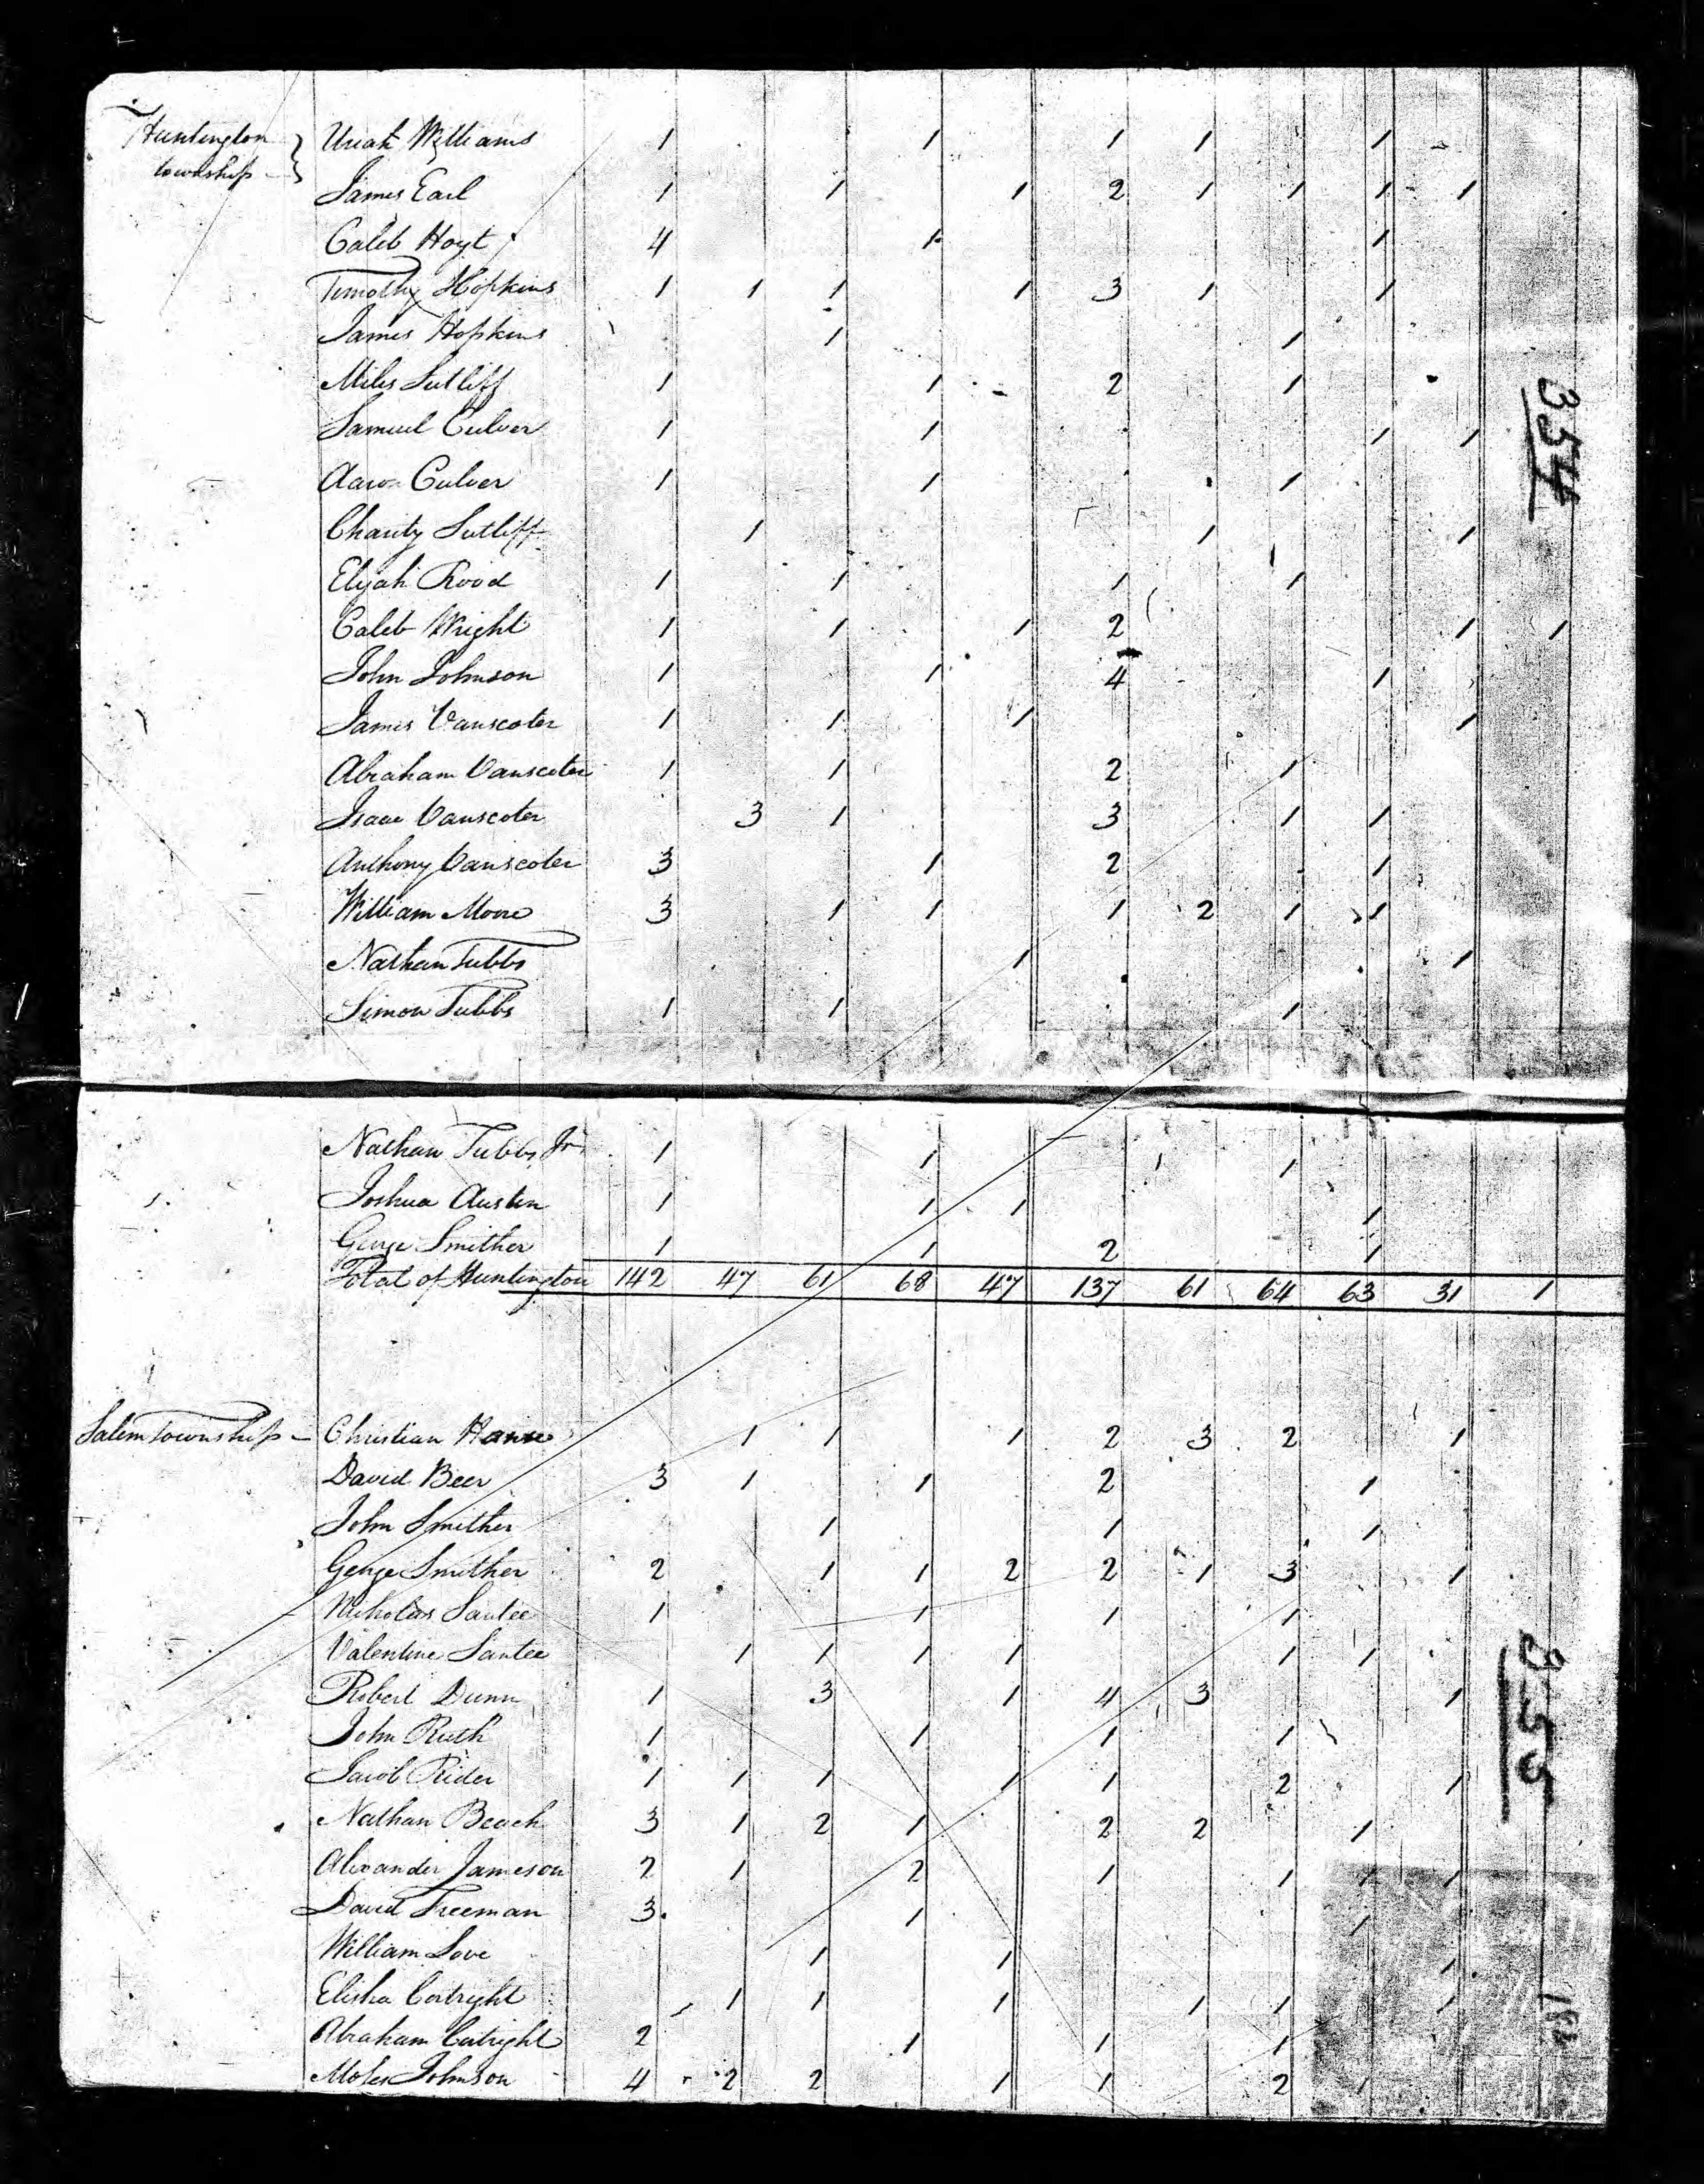 Huntington township } Uriah Williams 1 1 1 1 1
James Earl 1 1 1 2 1 1 1 1
Caleb Hoyt 4 1 1
Timothy Hopkins 1 1 1 1 3 1 1
James Hopkins 1 1
Miles Sutliff 1 1 2 1
Samuel Culver 1 1 1 1
Aaron Culver 1 1 1
Charity Sutliff 1 1 1
Elijah Rood 1 1 1 1
Caleb Wright 1 1 1 2 1 1
John Johnson 1 1 4 1
James Vanscoter 1 1 1 1
Abraham Vanscoter 1 1 2 1
Isaac Vanscoter 3 1 3 1 1
Anthony Vanscoter 3 1 2 1
William Moore 3 1 1 1 2 1 1
Nathan Tubbs 1 1
Simon Tubbs 1 1 1
354
Nathan Tubbs Jr 1 1 1
Joshua Austin 1 1 1 1
George Smither 1 1 2 1
Total of Huntington 142 47 61 68 47 137 61 64 63 31 1
Salem township – Christian 1 1 1 2 3 2 1
David Beer 3 1 1 2 1
John Smither 1 1 1
George Smither 2 1 1 2 2 1 3 1
Nicholas Santee 1 1 1 1
Valentine Santee 1 1 1 1 1 1
Robert Dunn 1 3 1 4 3 1
John Ruth 1 1 1 1
Jacob Rider 1 1 1 1 1 2 1
Nathan Beach 3 1 2 1 2 2 1
Alexander Jameson 2 1 2 1 1 1 1
David Freeman 3 1 1
William Love 1 1 1
Elisha Cortright 1 1 1 1 1 1
Abraham Cortright 2 1 1 1
Moses Johnson 4 2 2 1 1 2 1
355